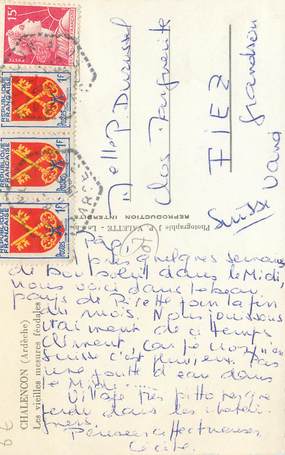 15F
RÉPUBLIQUE FRANÇAISE
1F
RÉPUBLIQUE FRANÇAISE
1F
RÉPUBLIQUE FRANÇAISE
1F
Clos
FIEZ
Grandson
Vaud
Suisse
Photographie P. VALETTE.
REPRODUCTION INTERDITE
CHALENCON (Ardèche)
Les vieilles masures féodales
quelques semaines
de bon soleil dans le Midi,
nous voici dans le beau
pays de pour la fin
du mois. Nous jouissons
vraiment de ce temps
clément, car je crois qu'en
Suisse c'est pluvieux. Pas
une goutte d'eau dans
le Midi....
Village très pittoresque
perdu dans les
Pensées affectueuses
Cécile.